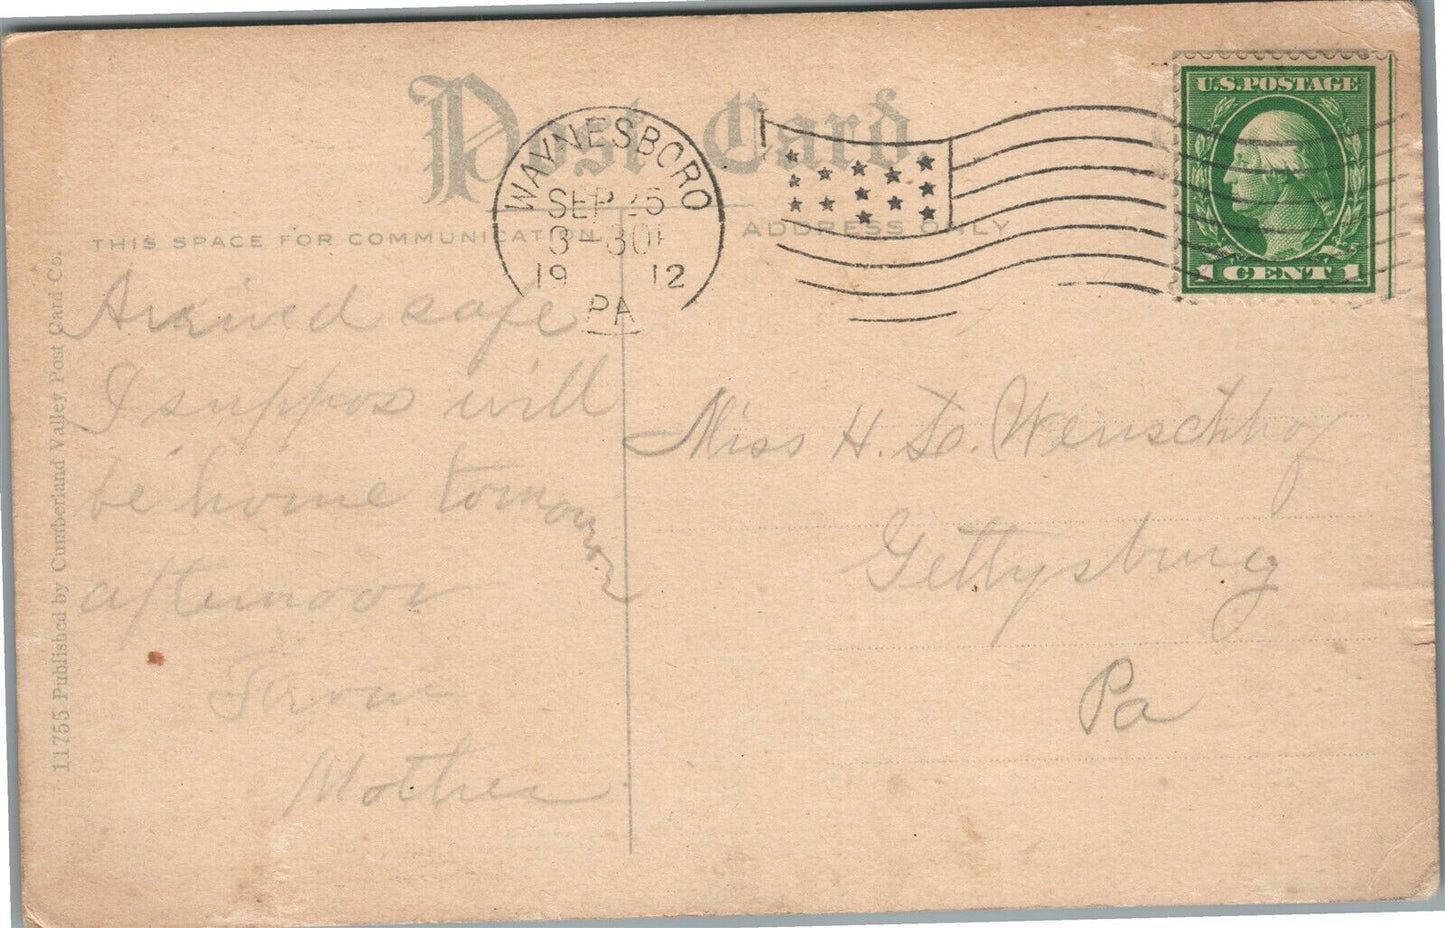 Post Card
WAYNESBORO
SEP 25
3-30P
1912
PA
U.S. POSTAGE
1 CENT 1
THIS SPACE FOR COMMUNICATION
ADDRESS ONLY
Arrived safe
I suppos will
be home tomorrow
afternoon
From
Mother
Miss H. D. Wenschhof
Gettysburg
Pa
11755 Published by Cumberland Valley Post Card Co.